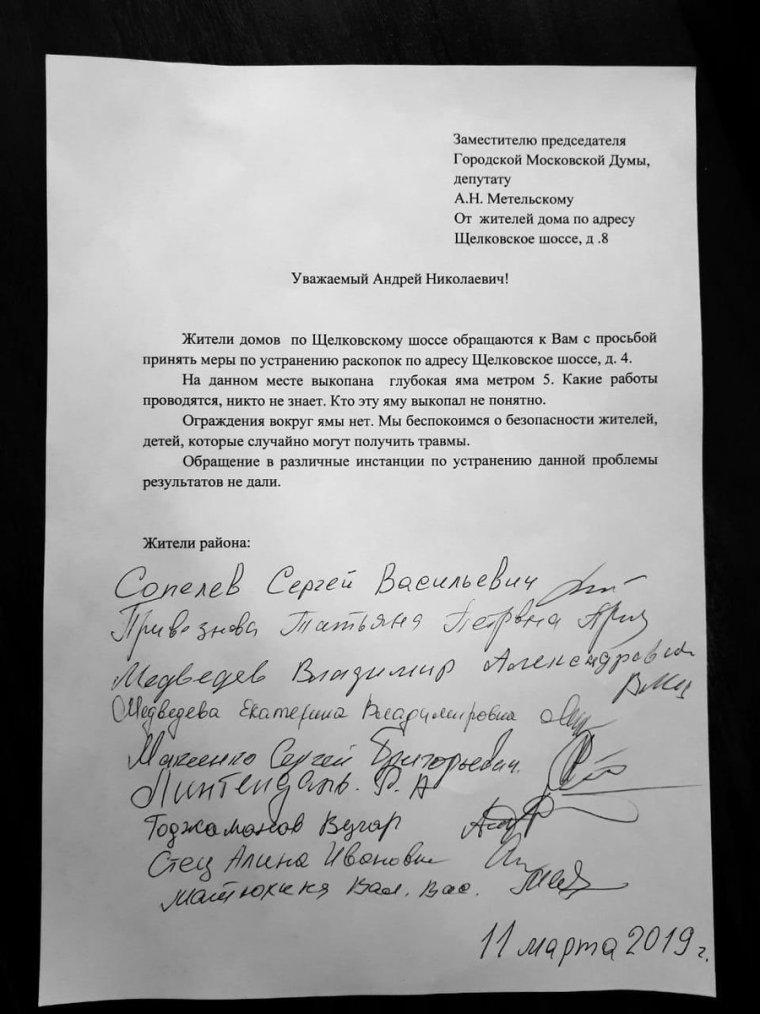 Заместителю председателя
Городской Московской Думы,
депутату
А.Н. Метельскому
От жителей дома по адресу
Щелковское шоссе, д .8
Уважаемый Андрей Николаевич!
Жители домов по Щелковскому шоссе обращаются к Вам с просьбой
принять меры по устранению раскопок по адресу Щелковское шоссе, д. 4.
На данном месте выкопана глубокая яма метром 5. Какие работы
проводятся, никто не знает. Кто эту яму выкопал не понятно.
Ограждения вокруг ямы нет. Мы беспокоимся о безопасности жителей,
детей, которые случайно могут получить травмы.
Обращение в различные инстанции по устранению данной проблемы
результатов не дали.
Жители района:
Сопелев Сергей Васильевич
Привезнова Татьяна Петровна
Медведев Владимир Александрович
Медведева Екатерина Владимировна
Сергей Григорьевич.
Ф. А
Вугар
Стец Алина Ивановна
Матюхина Вал. Вас.
11 марта 2019 г.